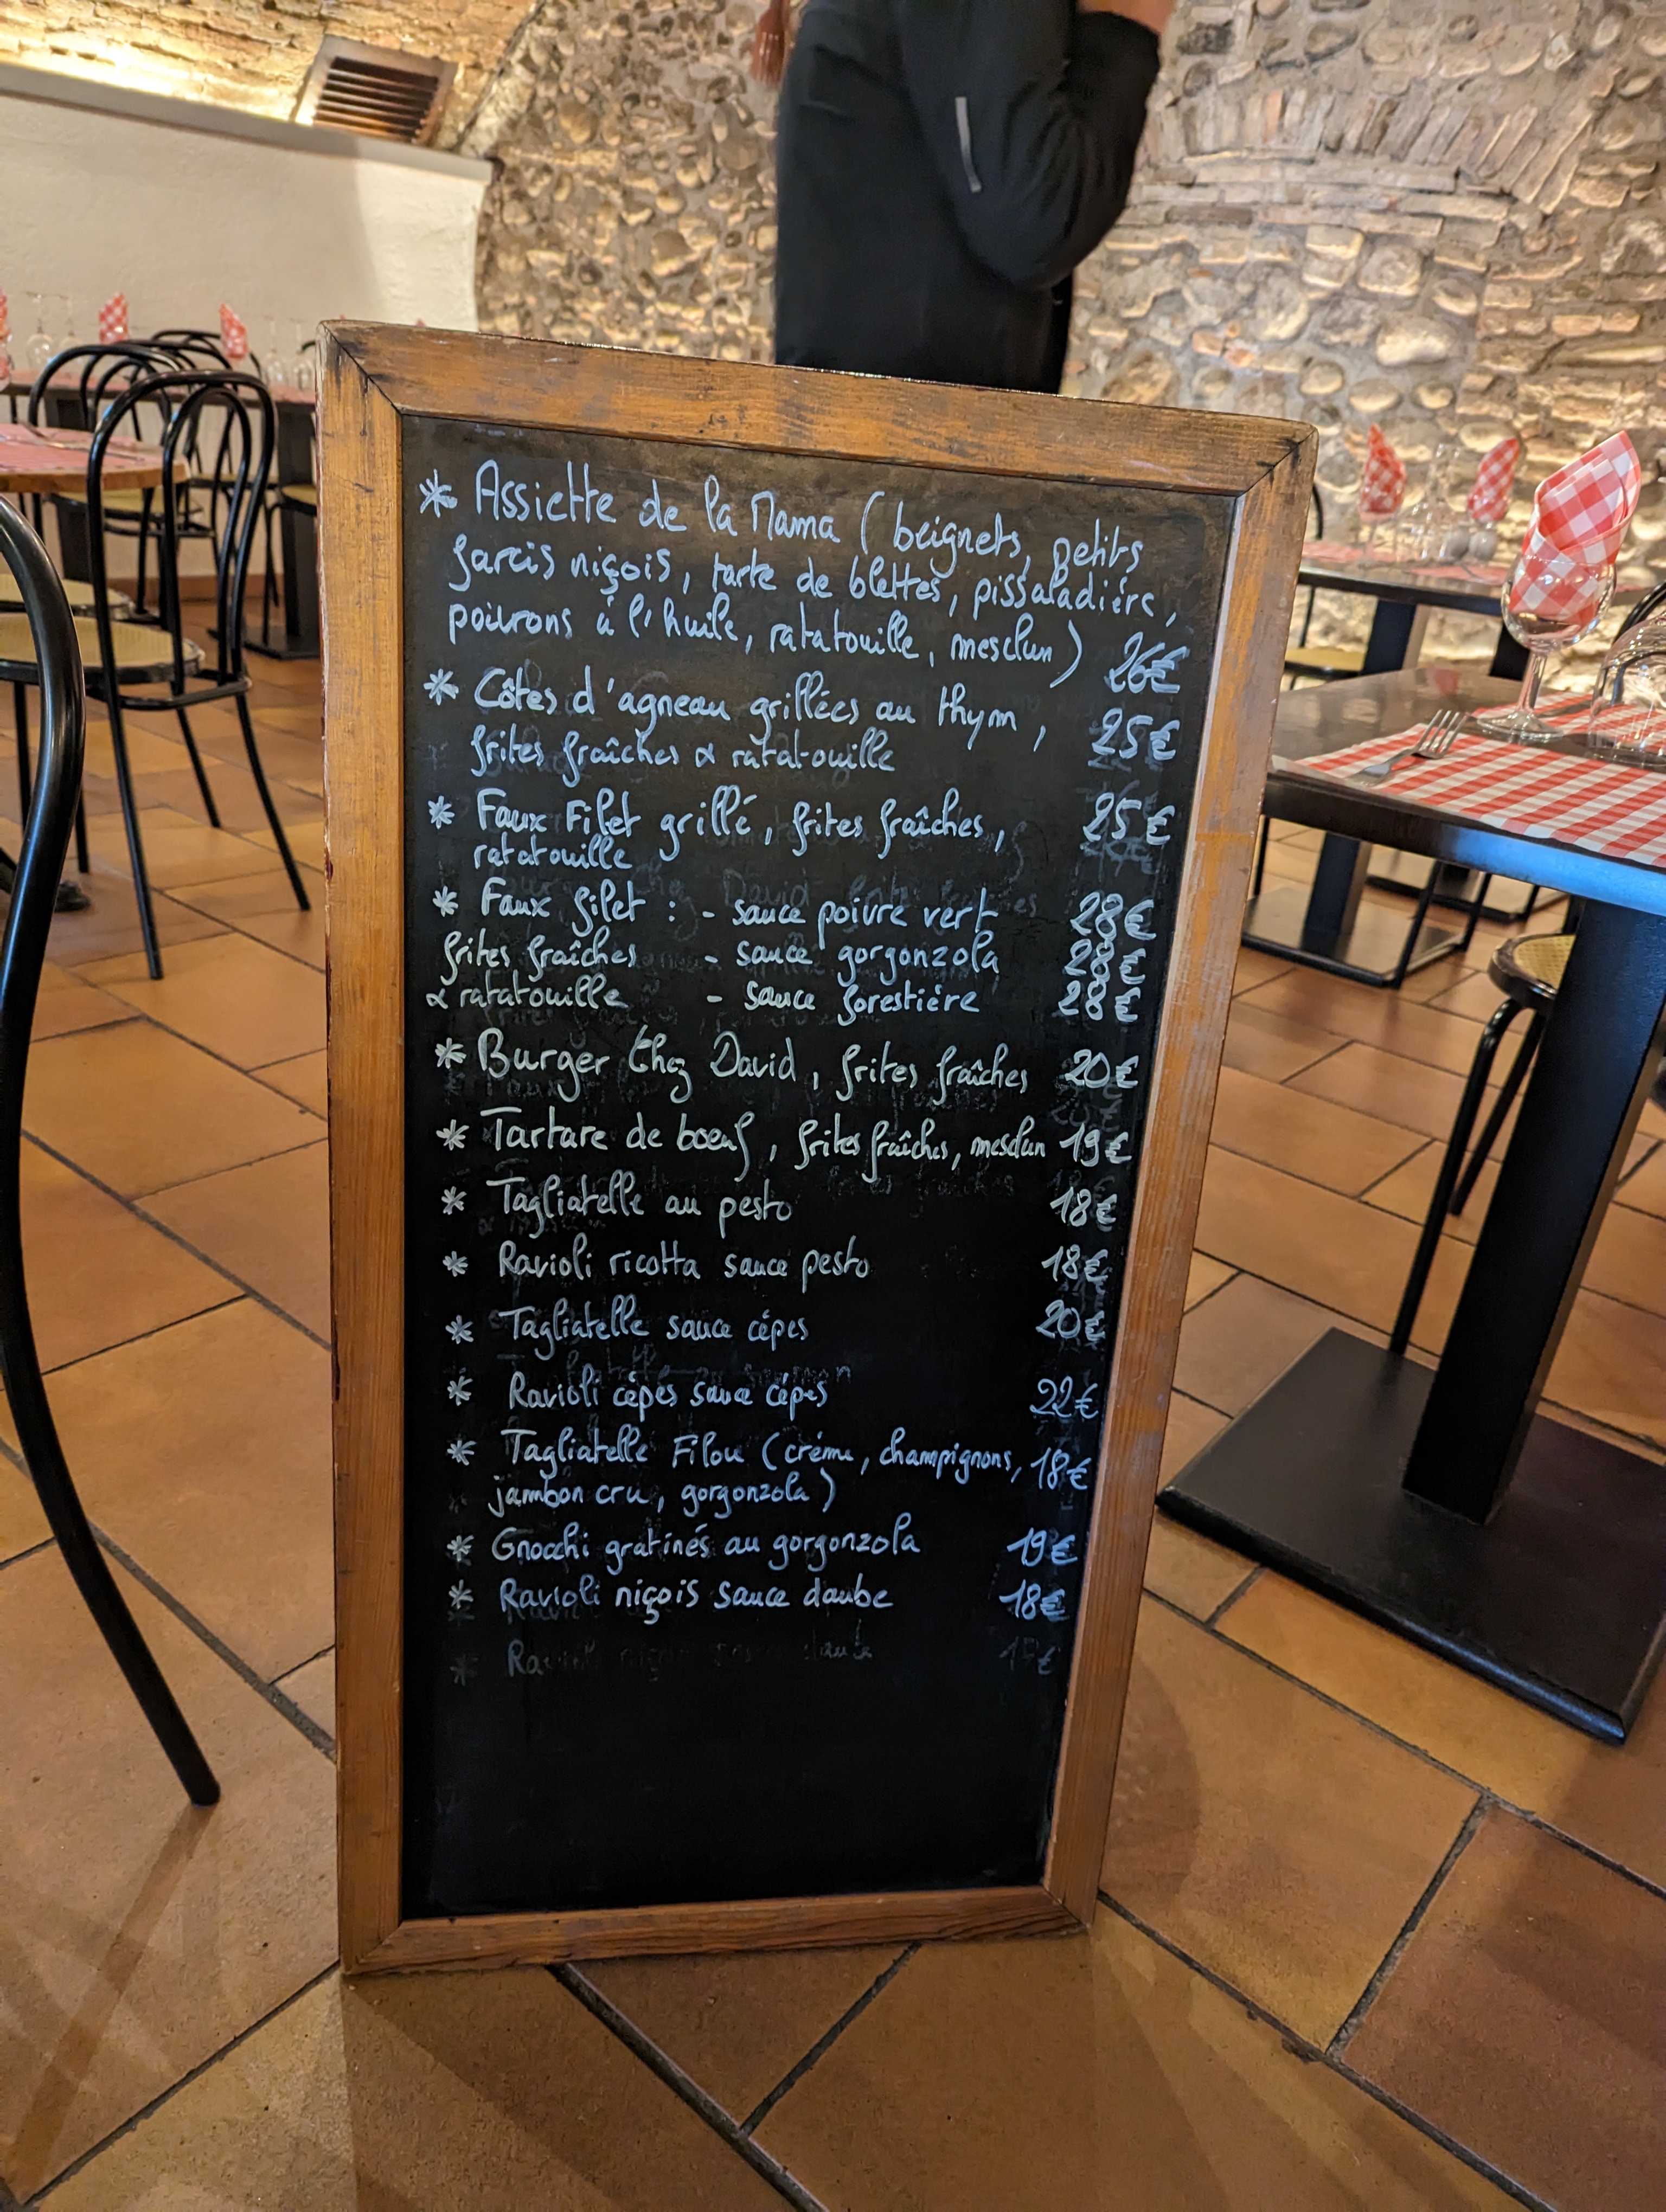 * Assiette de la Mama (beignets, petits
farcis niçois, tarte de blettes, pissaladière,
poivrons à l'huile, ratatouille, mesclun) 26€
* Côtes d'agneau grillées au thym, 25€
frites fraîches & ratatouille
* Faux Filet grillé, frites fraîches, 25€
ratatouille
* Faux filet : - sauce poivre vert 28€
frites fraîches - sauce gorgonzola 28€
& ratatouille - sauce forestière 28€
* Burger Chez David, frites fraîches 20€
* Tartare de boeuf, frites fraîches, mesclun 19€
* Tagliatelle au pesto 18€
* Ravioli ricotta sauce pesto 18€
* Tagliatelle sauce cépes 20€
* Ravioli cépes sauce cépes 22€
* Tagliatelle Filou (créme, champignons, 18€
jambon cru, gorgonzola)
* Gnocchi gratinés au gorgonzola 19€
* Ravioli niçois sauce daube 18€